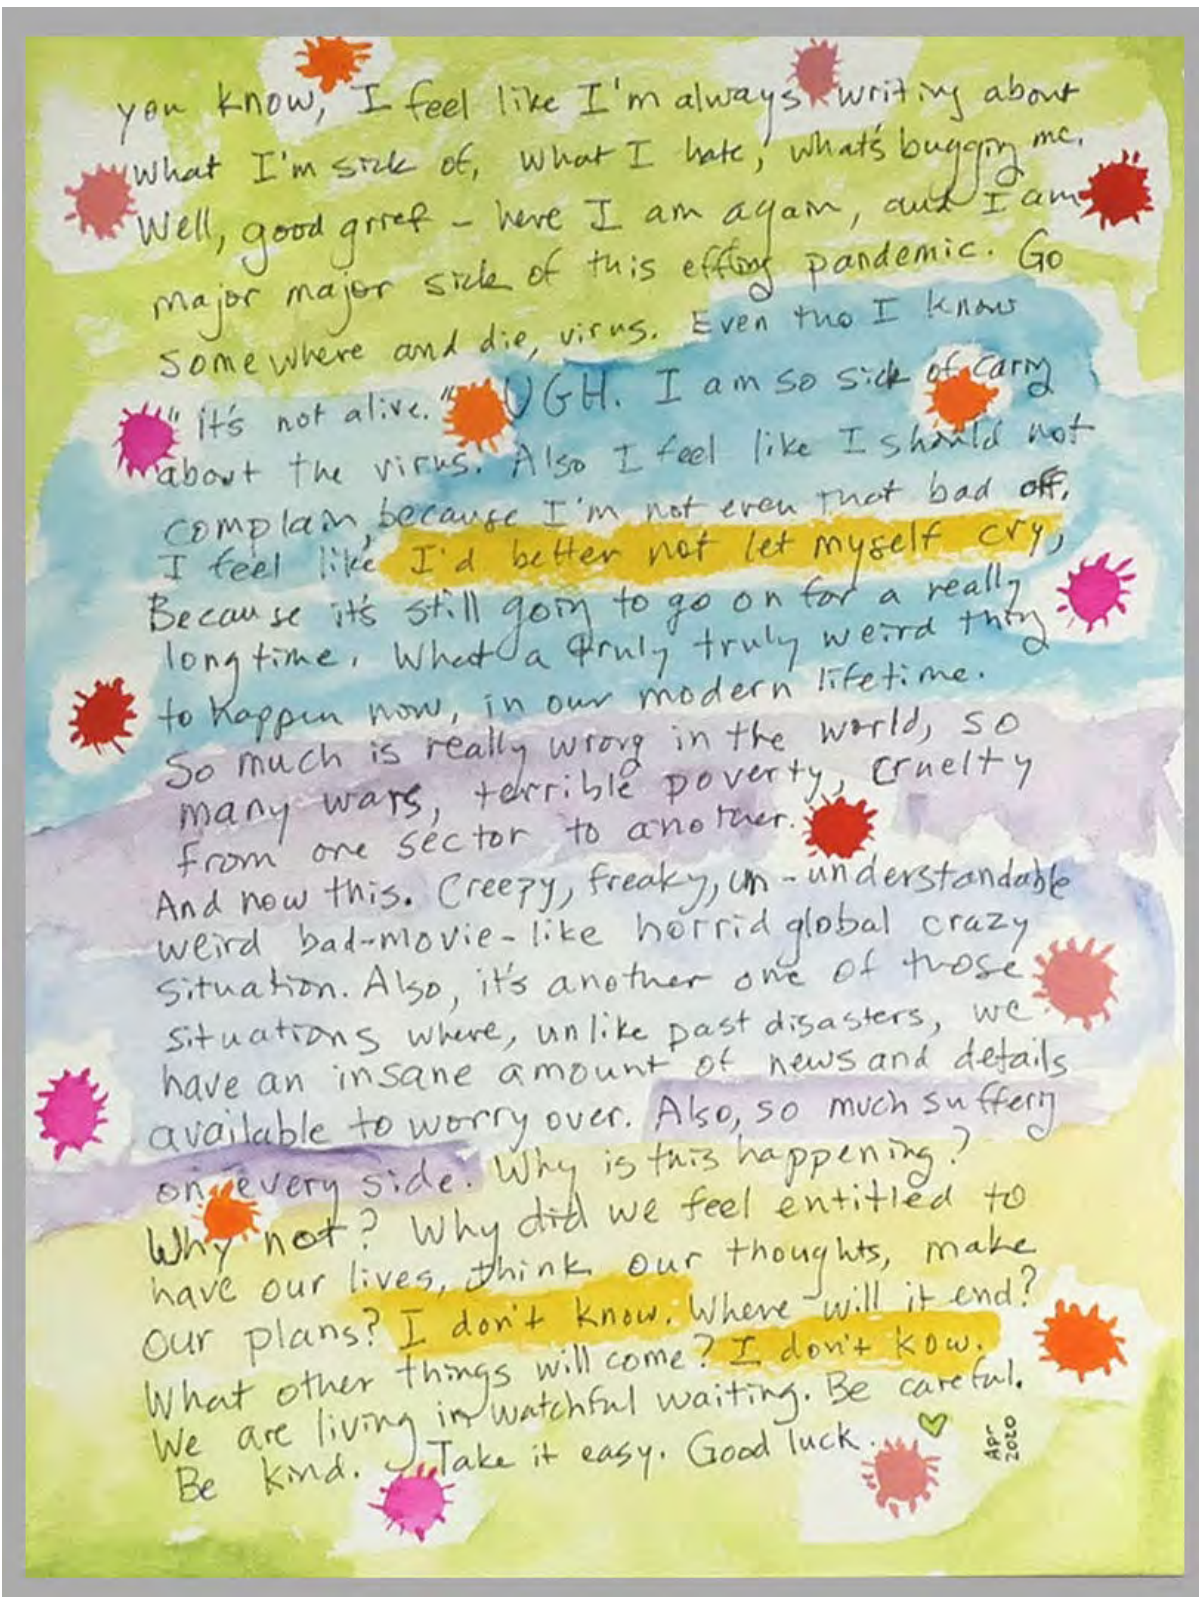 you know, I feel like I'm always writing about
what I'm sick of, what I hate, what's bugging me.
Well, good grief – here I am again, and I am
major major sick of this effing pandemic. Go
somewhere and die, virus. Even tho I know
"it's not alive." UGH. I am so sick of caring
about the virus. Also I feel like I should not
complain, because I'm not even that bad off.
I feel like I'd better not let myself cry,
Because it's still going to go on for a really
long time. What a truly truly weird thing
to happen now, in our modern lifetime.
So much is really wrong in the world, so
many wars, terrible poverty, cruelty
from one sector to another.
And now this. Creepy, freaky, un-understandable
weird bad-movie-like horrid global crazy
situation. Also, it's another one of those
situations where, unlike past disasters, we
have an insane amount of news and details
available to worry over. Also, so much suffering
on every side. Why is this happening?
Why not? Why did we feel entitled to
have our lives, think our thoughts, make
our plans? I don't know. Where will it end?
What other things will come? I don't kow.
We are living in watchful waiting. Be careful.
Be kind. Take it easy. Good luck.
Apr
2020